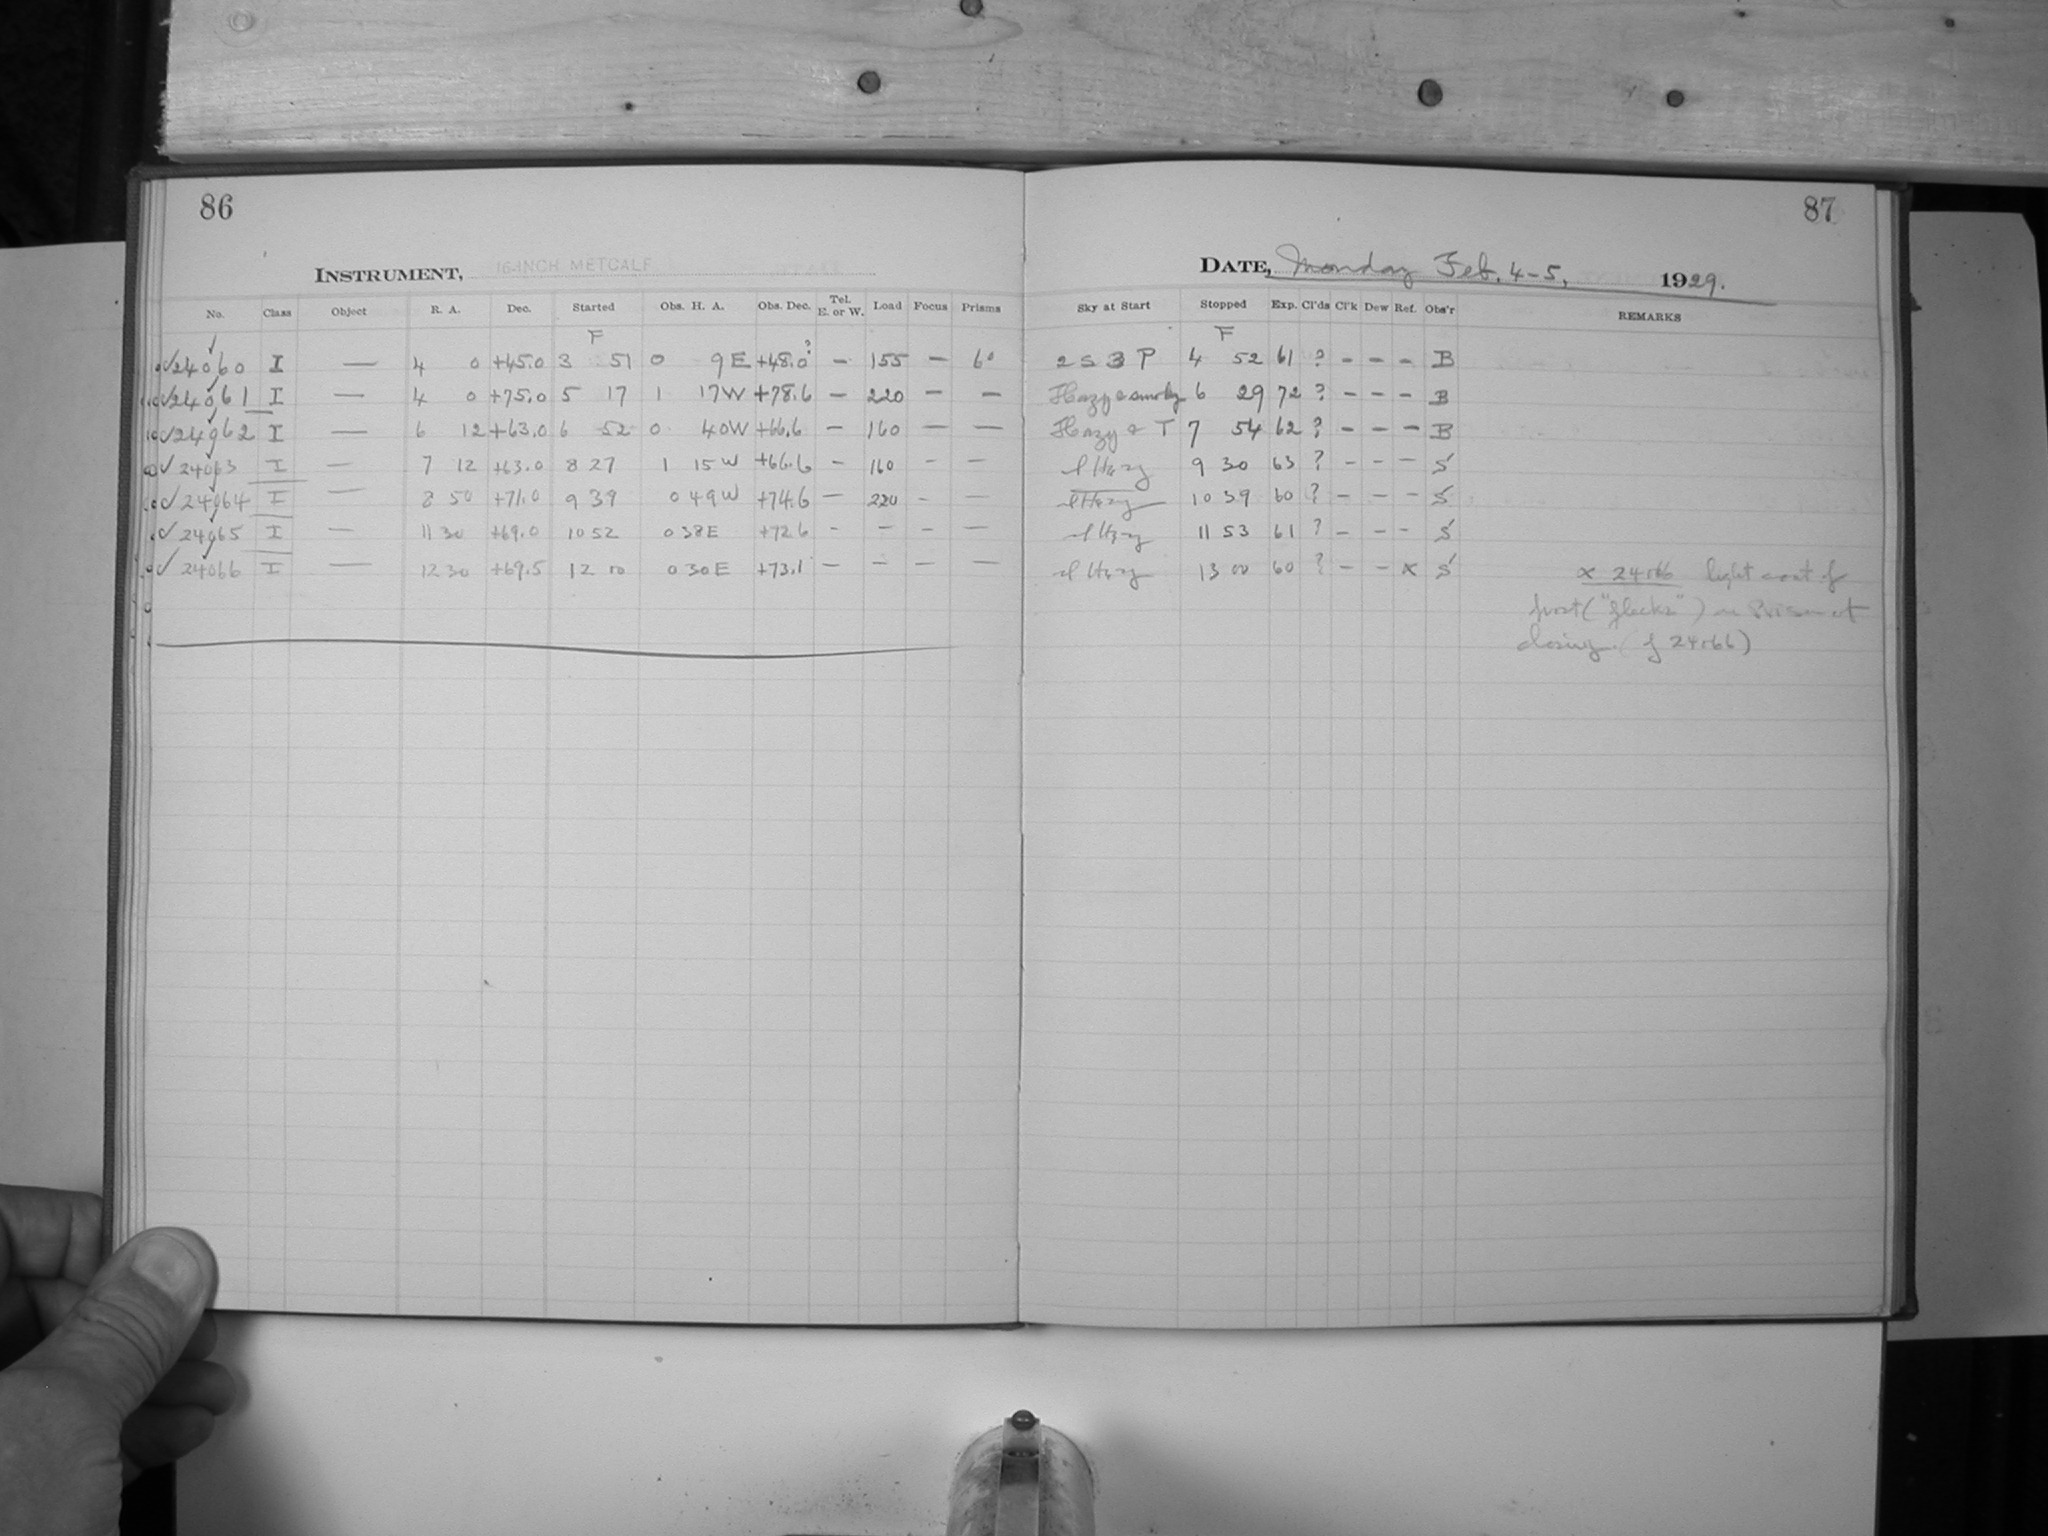 86
INSTRUMENT, 16-INCH METCALF
No. Class Object R. A. Dec. Started Obs. H. A. Obs. Dec. Tel. E. or W. Load Focus Prisms
F
✓24060 I — 4 0 +45.0 3 51 0 9E +48.0? — 155 — 6°
✓24061 I — 4 0 +75.0 5 17 1 17W +78.6 — 220 — —
✓24062 I — 6 12 +63.0 6 52 0 40W +66.6 — 160 — —
✓24063 I — 7 12 +63.0 8 27 1 15W +66.6 — 160 — —
✓24064 I — 8 50 +71.0 9 39 0 49W +74.6 — 220 — —
✓24065 I — 11 30 +69.0 10 52 0 38E +72.6 — — — —
✓24066 I — 12 30 +69.5 12 00 0 30E +73.1 — — — —
87
DATE, Monday Feb. 4-5, 1929.
Sky at Start Stopped Exp. Cl'ds Cl'k Dew Ref. Obs'r REMARKS
F
2 S 3 P 4 52 61 ? — — — B
Hazy & smoky 6 29 72 ? — — — B
Hazy & T 7 54 62 ? — — — B
Hazy 9 30 63 ? — — — S
Hazy 10 39 60 ? — — — S
Hazy 11 53 61 ? — — — S
Hazy 13 00 60 ? — — x S
x 24066 light coat of
frost ("flecks") on Prism at
closing (of 24066)